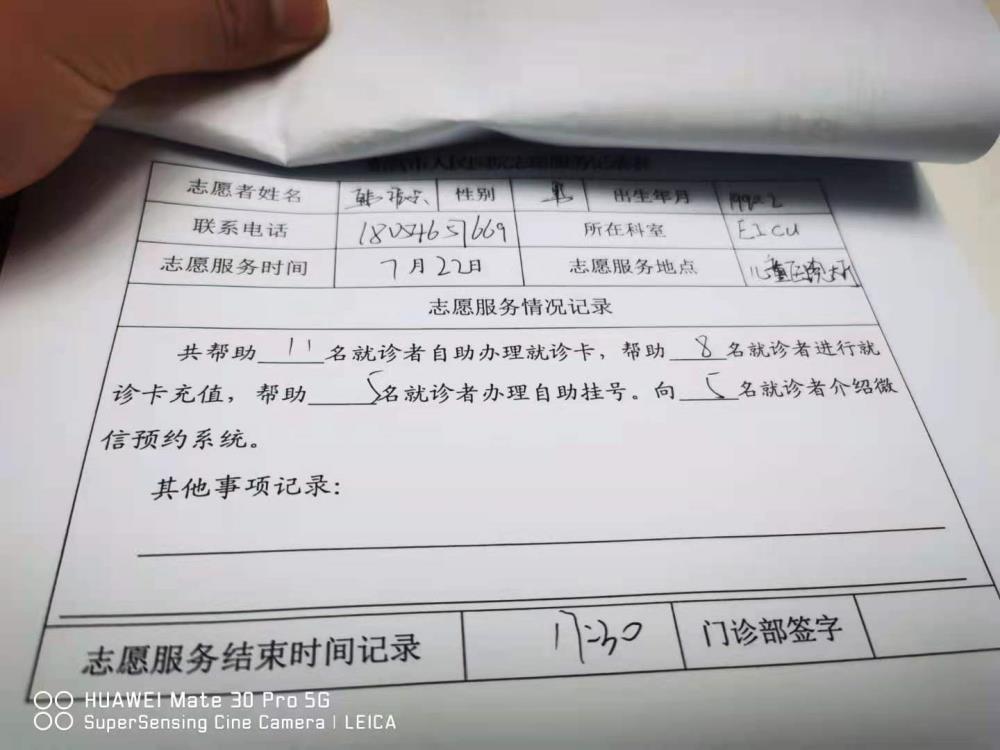 志愿者姓名 性别 男 出生年月 1992.2
联系电话 18054651669 所在科室 EICU
志愿服务时间 7月22日 志愿服务地点 儿童医院大厅
志愿服务情况记录
共帮助 11 名就诊者自助办理就诊卡，帮助 8 名就诊者进行就
诊卡充值，帮助 5 名就诊者办理自助挂号。向 5 名就诊者介绍微
信预约系统。
其他事项记录：
志愿服务结束时间记录 17:30 门诊部签字
HUAWEI Mate 30 Pro 5G
SuperSensing Cine Camera | LEICA